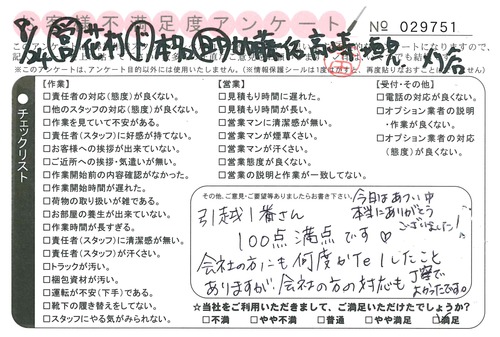 お客様不満足度アンケート
No 029751
8/24
※このアンケートは、アンケート目的以外には使用いたしません。(※情報保護シールは1度はがすと、再度貼りなおすことは
チェックリスト
【作業】
□責任者の対応(態度)が良くない。
□他のスタッフの対応(態度)が良くない。
□作業を見ていて不安がある。
□責任者(スタッフ)に好感が持てない。
□お客様への挨拶が出来ていない。
□ご近所への挨拶・気遣いが無い。
□作業開始前の内容確認がなかった。
□作業開始時間が遅れた。
□荷物の取り扱いが雑である。
□お部屋の養生が出来ていない。
□作業時間が長すぎる。
□責任者(スタッフ)に清潔感が無い。
□責任者(スタッフ)が汗くさい。
□トラックが汚い。
□梱包資材が汚い。
□運転が不安(下手)である。
□靴下の履き替えをしてない。
□スタッフにやる気がみられない。
【営業】
□見積もり時間に遅れた。
□見積もり時間が長い。
□営業マンに清潔感が無い。
□営業マンが煙草くさい。
□営業マンが汗くさい。
□営業態度が良くない。
□営業の説明と作業が一致してない。
【受付・その他】
□電話の対応が良くない。
□オプション業者の説明
・作業が良くない。
□オプション業者の対応
(態度)が良くない。
その他、ご意見・ご要望等ありましたらお書き下さい。
今日はあつい中
本当にありがとう
ございました!
引越1番さん
100点満点です♡
会社の方にも何度かtelしたこと
ありますが、会社の方の対応も丁寧で
よかったです。
☆当社をご利用いただきまして、ご満足いただけたでしょうか?
□不満 □やや不満 □普通 □やや満足 □満足